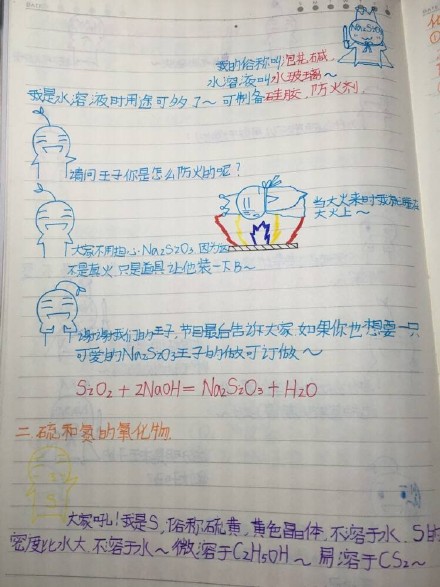 Na₂SiO₃
我的俗称叫泡花碱,
水溶液叫水玻璃~
我是水溶液时用途可多了~ 可制备硅胶,防火剂.
请问王子你是怎么防火的呢?
当大火来时我就睡在
大火上~
大家不用担心Na₂SiO₃, 因为这
不是真火,只是道具让他装一下B~
谢谢我们的王子,节目最后告诉大家,如果你也想要一只
可爱的Na₂SiO₃王子的做可订做~
SiO₂ + 2NaOH = Na₂SiO₃ + H₂O
二.硫和氮的氧化物.
大家叽!我是S, 俗称硫黄,黄色晶体,不溶于水. S的
密度比水大,不溶于水~ 微溶于C₂H₅OH~ 易溶于CS₂~